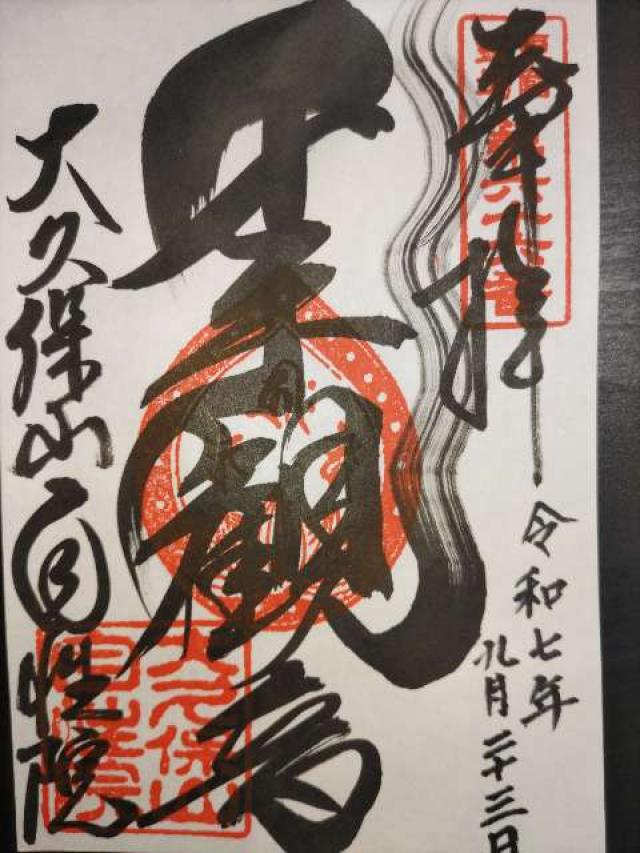 奉拝
令和七年
九月二十三日
聖観音
大久保山自性院
大久保山